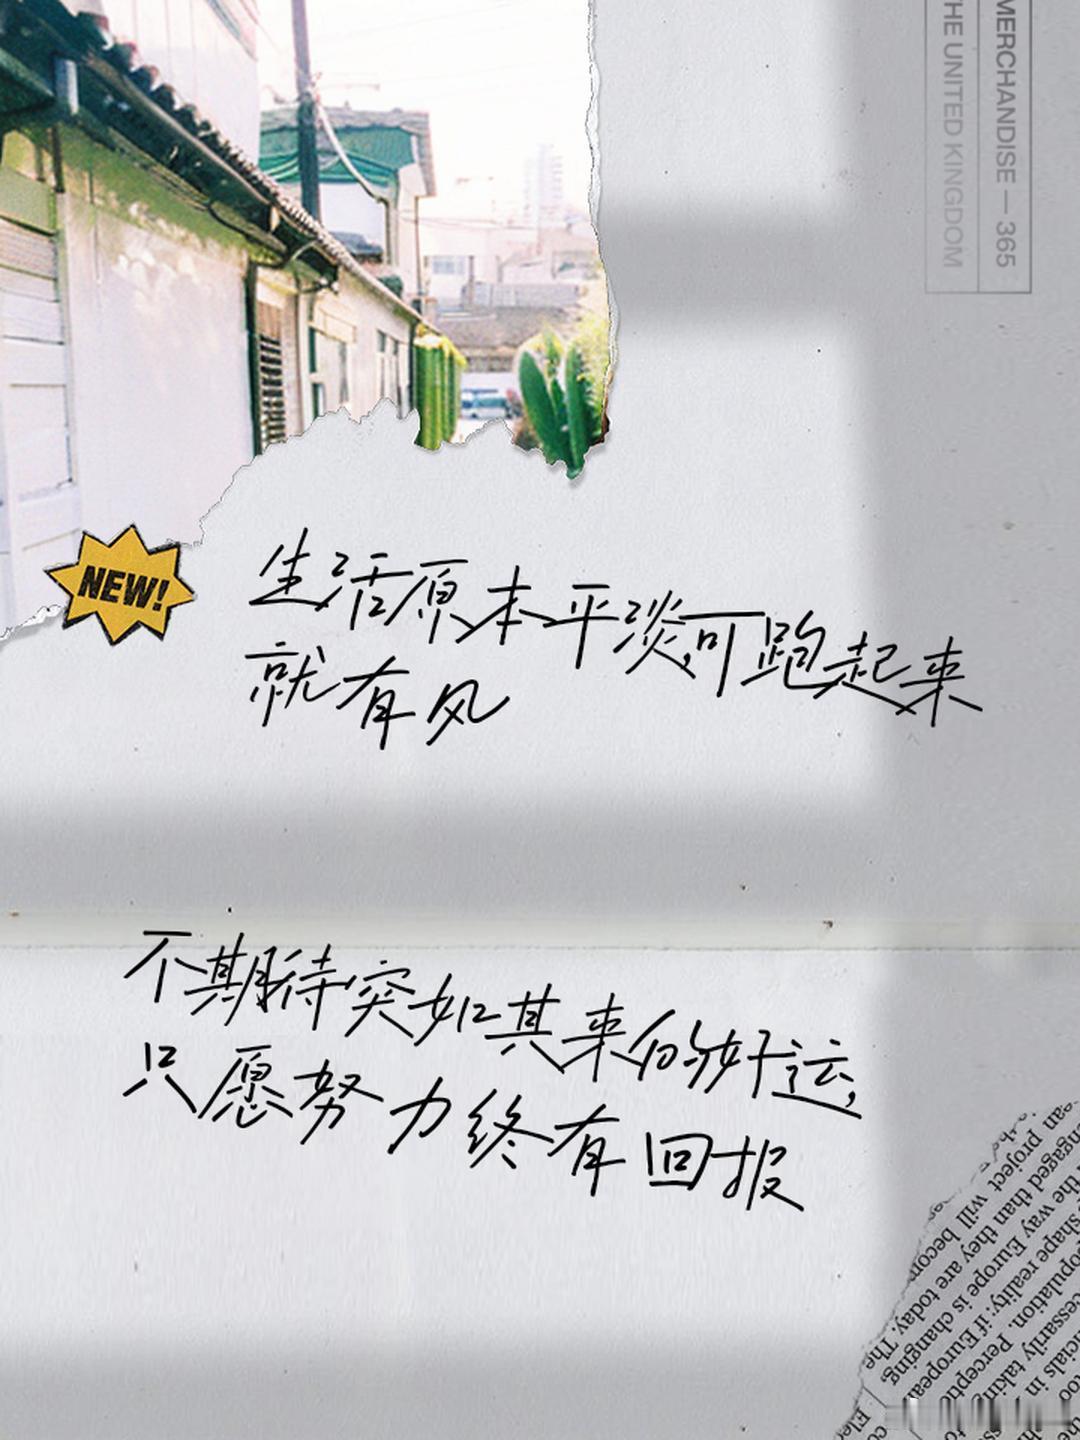 MERCHANDISE — 365
THE UNITED KINGDOM
NEW!
生活原本平淡,可跑起来
就有风
不期待突如其来的好运,
只愿努力终有回报
an project will becom
ngaged than they are today. The
the way Europe is changing,
shape reality: if European
opulation. Perceptio
cessarily takin
icials in